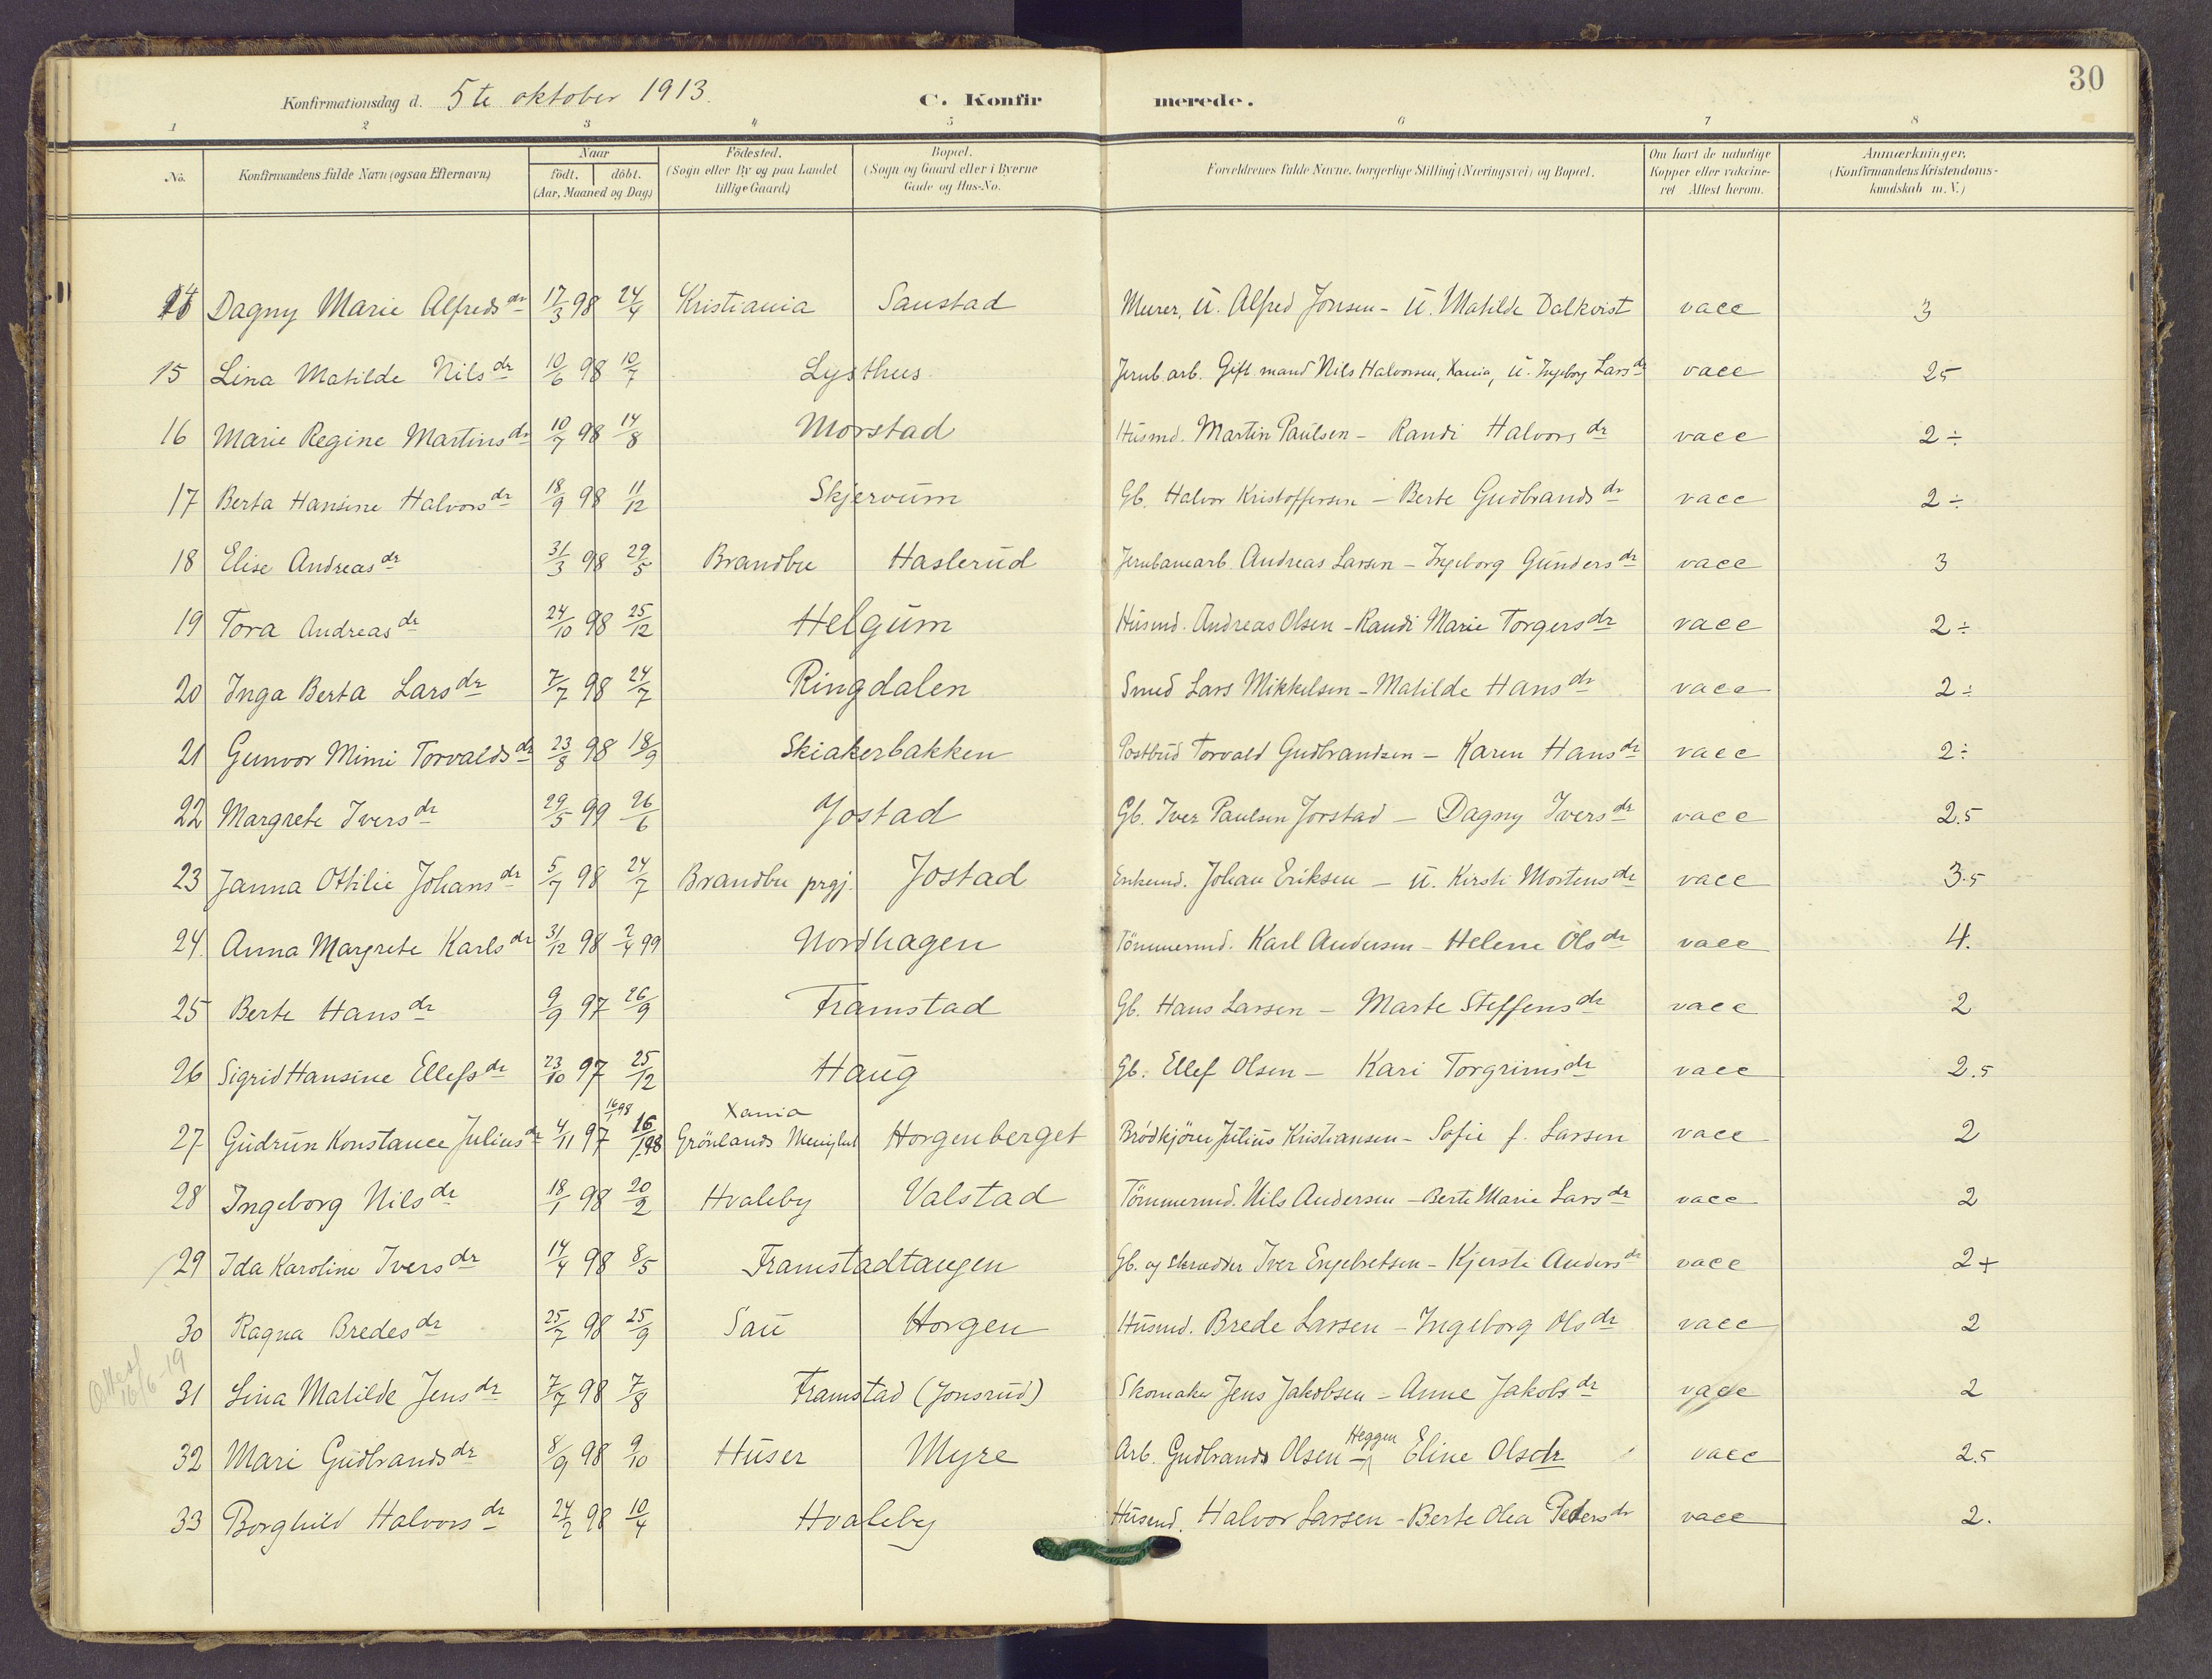 30
Konfirmationsdag d. 5te oktober 1913. C. Konfirmerede.
1 2 3 4 5 6 7 8
No. Konfirmandens fulde Navn (ogsaa Efternavn) Naar født. døbt. (Aar, Maaned og Dag) Fødested. (Sogn eller By og paa Landet tillige Gaard) Bopæl. (Sogn og Gaard eller i Byerne Gade og Hus-No. Forældrenes fulde Navne, borgerlige Stilling (Næringsvei) og Bopæl. Om havt de naturlige Kopper eller vakcineret Attest herom. Anmærkninger. (Konfirmandens Kristendomskundskab m. V.)
14 Dagny Marie Alfredsdr 17/3 98 24/4 Kristiania Saustad Murer, U. Alfred Jonsen - U. Matilde Dalkvist vacc 3
15 Lina Matilde Nilsdr 10/6 98 10/7 Lysthus Jernb.arb. Gift mand Nils Halvorsen, Xania, U. Ingeborg Larsdr vacc 25
16 Marie Regine Martinsdr 10/7 98 14/8 Morstad Husmd. Martin Paulsen - Randi Halvorsdr vacc 2÷
17 Berta Hansine Halvorsdr 18/9 98 11/12 Skjervum Gb. Halvor Kristoffersen - Berte Gudbrandsdr vacc 2÷
18 Elise Andreasdr 31/3 98 29/5 Brandbu Haslerud Jernbanearb. Andreas Larsen - Ingeborg Gundersdr vacc 3
19 Tora Andreasdr 24/10 98 25/12 Helgum Husmd. Andreas Olsen - Randi Marie Torgersdr vacc 2÷
20 Inga Berta Larsdr 7/7 98 24/7 Ringdalen Smed Lars Mikkelsen - Matilde Hansdr vacc 2÷
21 Gunvor Mimi Torvaldsdr 23/8 98 18/9 Skiakerbakken Postbud Torvald Gudbrandsen - Karen Hansdr vacc 2÷
22 Margrete Iversdr 29/5 99 26/6 Jostad Gb. Iver Paulsen Jorstad - Dagny Iversdr vacc 2.5
23 Janna Ottilie Johansdr 5/7 98 24/7 Brandbu prgj. Jostad Enkemd. Johan Eriksen - U. Kirsti Mortensdr vacc 3.5
24. Anna Margrete Karlsdr 31/12 98 2/4 99 Nordhagen Tömmermd. Karl Andersen - Helene Olsdr vacc 4.
25 Berte Hansdr 9/9 97 26/9 Framstad Gb. Hans Larsen - Marte Steffensdr vacc 2
26 Sigrid Hansine Ellefsdr 23/10 97 25/12 Haug Gb. Ellef Olsen - Kari Torgrimsdr vacc 2.5
27 Gudrun Konstance Juliusdr 4/11 97 16/1 98 16/1 98 Xania Grönlands Menighed Horgenberget Brödkjörer Julius Kristiansen - Sofie f. Larsen vacc 2
28 Ingeborg Nilsdr 18/1 98 20/2 Hvaleby Valstad Tömmermd. Nils Andersen - Berte Marie Larsdr vacc 2
29 Ida Karoline Iversdr 14/4 98 8/5 Framstadtangen Gb. og Skrædder Iver Engebretsen - Kjersti Andersdr vacc 2+
30 Ragna Bredesdr 25/7 98 25/9 Sau Horgen Husmd. Brede Larsen - Ingeborg Olsdr vacc 2
Attest 16/6-19
31 Lina Matilde Jensdr 7/7 98 7/8 Framstad (Jonsrud) Skomaker Jens Jakobsen - Anne Jakobsdr vacc 2
32 Mari Gudbrandsdr 8/9 98 9/10 Huser Myre Arb. Gudbrands Olsen - Heggen Eline Olsdr vacc 2.5
33 Borghild Halvorsdr 24/2 98 10/4 Hvaleby Husmd. Halvor Larsen - Berte Olea Pedersdr vacc 2.